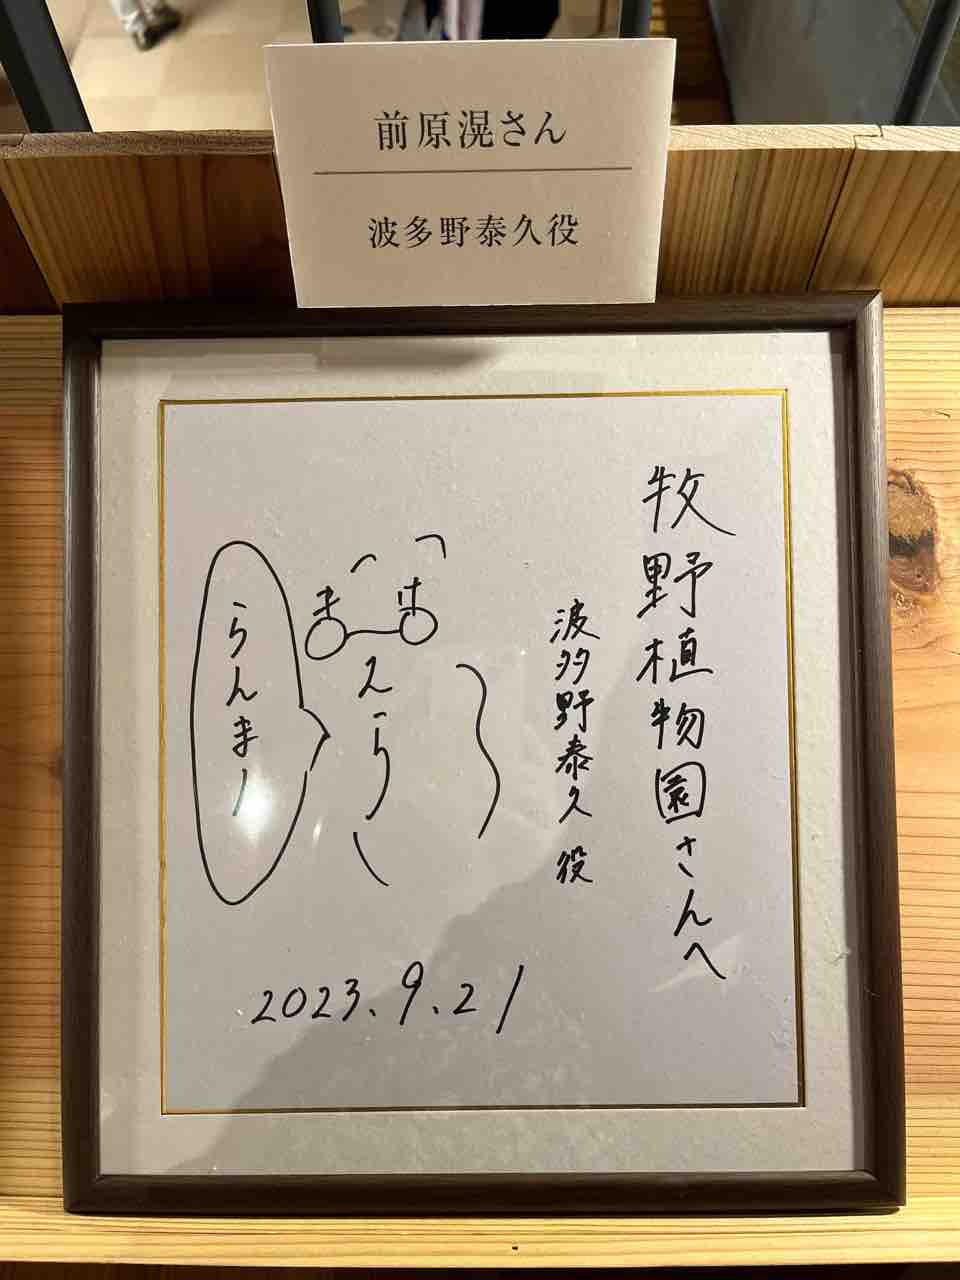 前原滉さん
波多野泰久役
牧野植物園さんへ
波多野泰久 役
まえはら
らんまー
2023.9.21